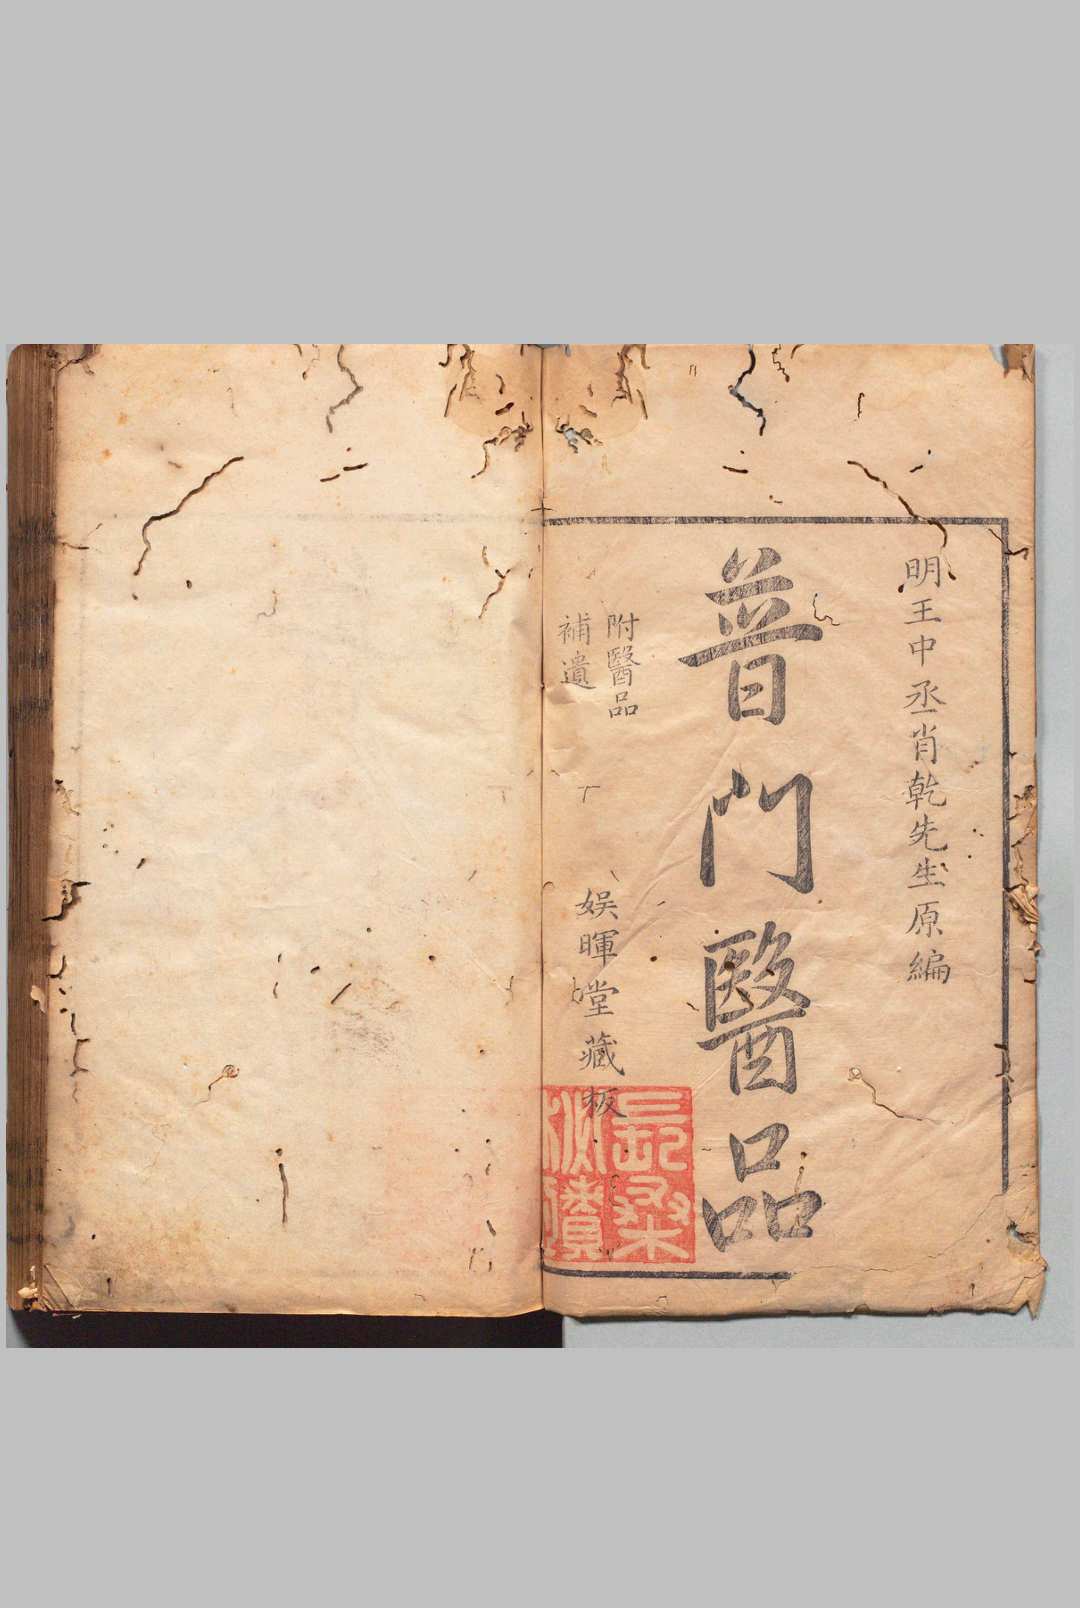 明王中丞肖乾先生原編
普門醫品
附醫品
補遺
娯暉堂藏板